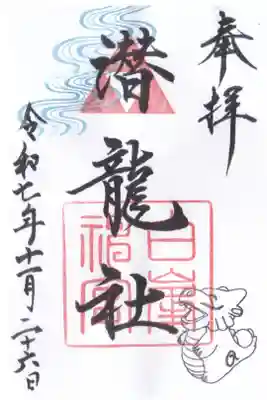 奉拝
潜龍社
白峯
神宮
令和七年十一月二十六日